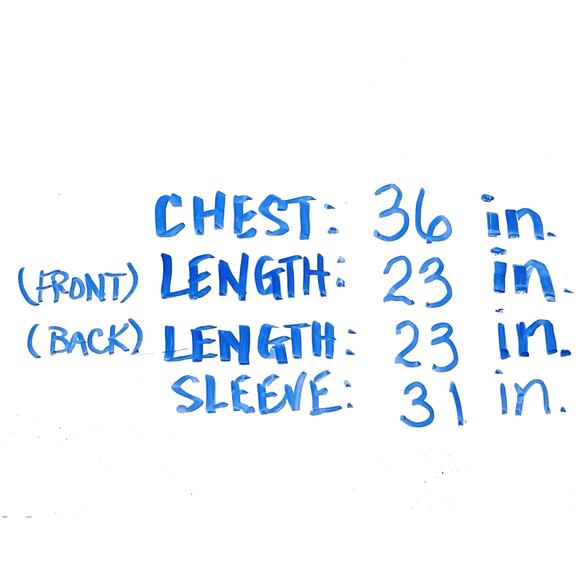 CHEST: 36 in.
(FRONT) LENGTH: 23 in.
(BACK) LENGTH: 23 in.
SLEEVE: 31 in.